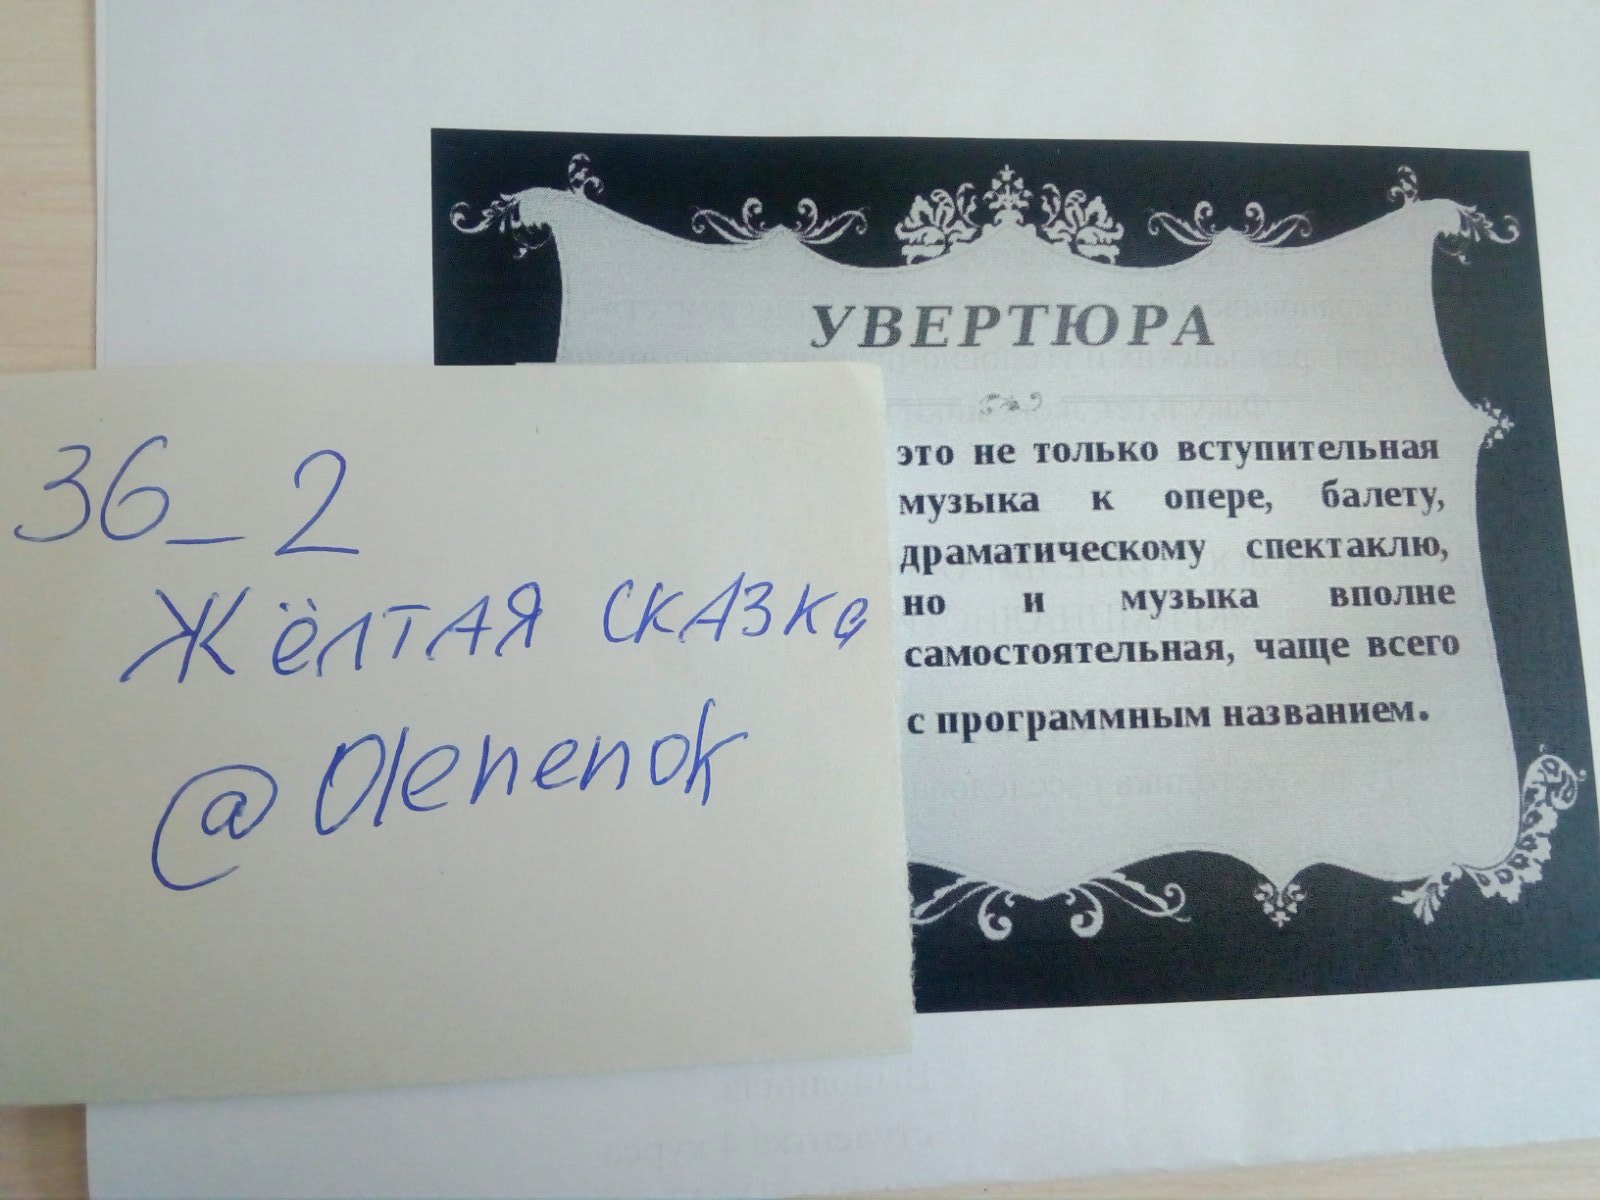 УВЕРТЮРА
это не только вступительная
музыка к опере, балету,
драматическому спектаклю,
но и музыка вполне
самостоятельная, чаще всего
с программным названием.
36_2
Жёлтая сказка
@Olenenok